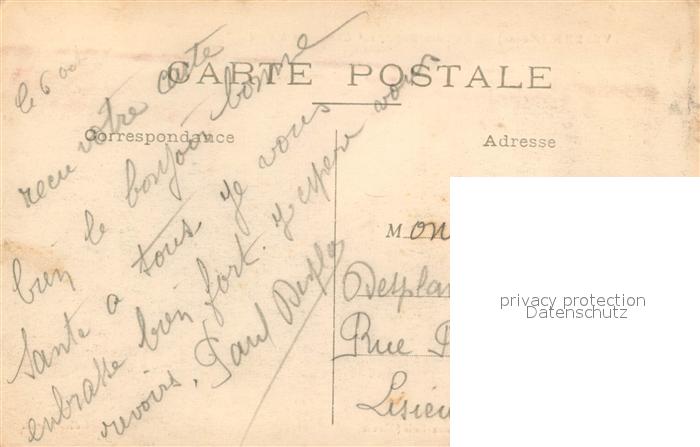 le 6 oct
CARTE POSTALE
Correspondance
Adresse
recu votre carte
bien le bonjour bonne
Sante a tous je vous
enbrasse bien fort. j espere vous
revoirs. Paul Despla
Mon
Desplan
Rue
Lisieu
privacy protection
Datenschutz